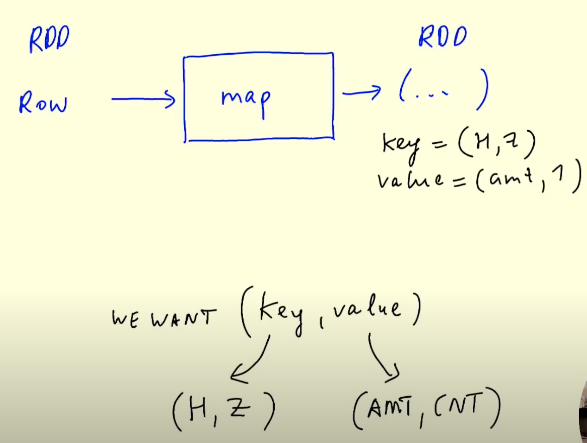 RDD RDD
Row map (... )
key = (H,Z)
value = (amt, 1)
WE WANT (key, value)
(H, Z) (AMT, CNT)